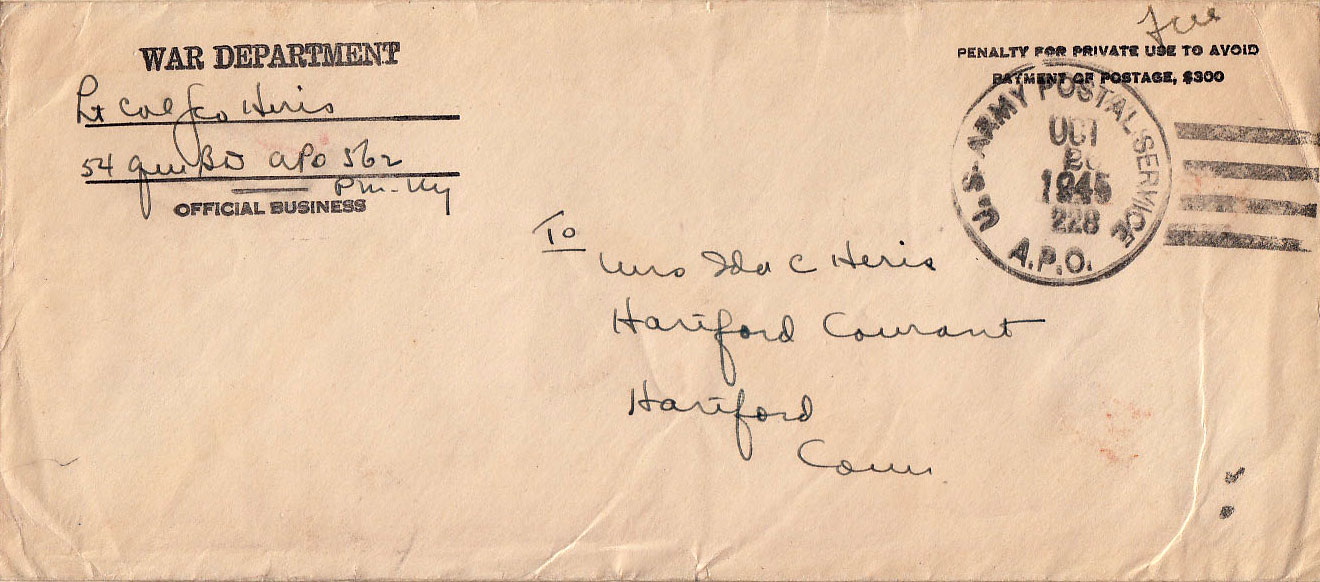 Free
WAR DEPARTMENT
PENALTY FOR PRIVATE USE TO AVOID
PAYMENT OF POSTAGE, $300
Lt Col Heris
54 QM BD APO 562
PM - NY
OFFICIAL BUSINESS
U.S. ARMY POSTAL SERVICE
OCT
1945
228
A.P.O.
To
Mrs Ida C Heris
Hartford Courant
Hartford
Conn.